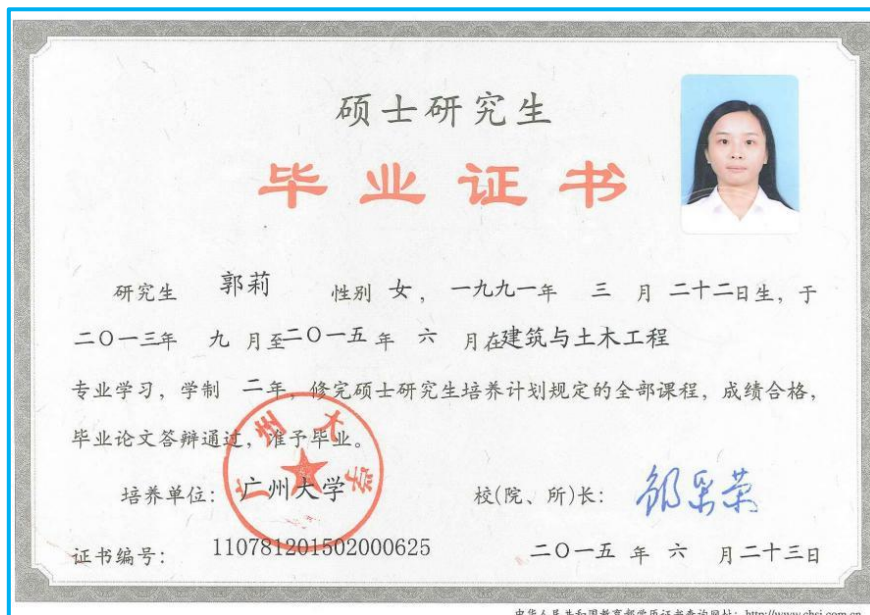 硕士研究生
毕业证书
研究生 郭莉 性别 女， 一九九一年 三 月 二十二日生，于
二〇一三年 九 月至二〇一五 年 六 月在建筑与土木工程
专业学习，学制 二年，修完硕士研究生培养计划规定的全部课程，成绩合格，
毕业论文答辩通过，准予毕业。
培养单位：广州大学 校(院、所)长：
广州大学
证书编号： 110781201502000625 二〇一五 年 六 月二十三日
中华人民共和国教育部学历证书查询网址：http://www.chsi.com.cn